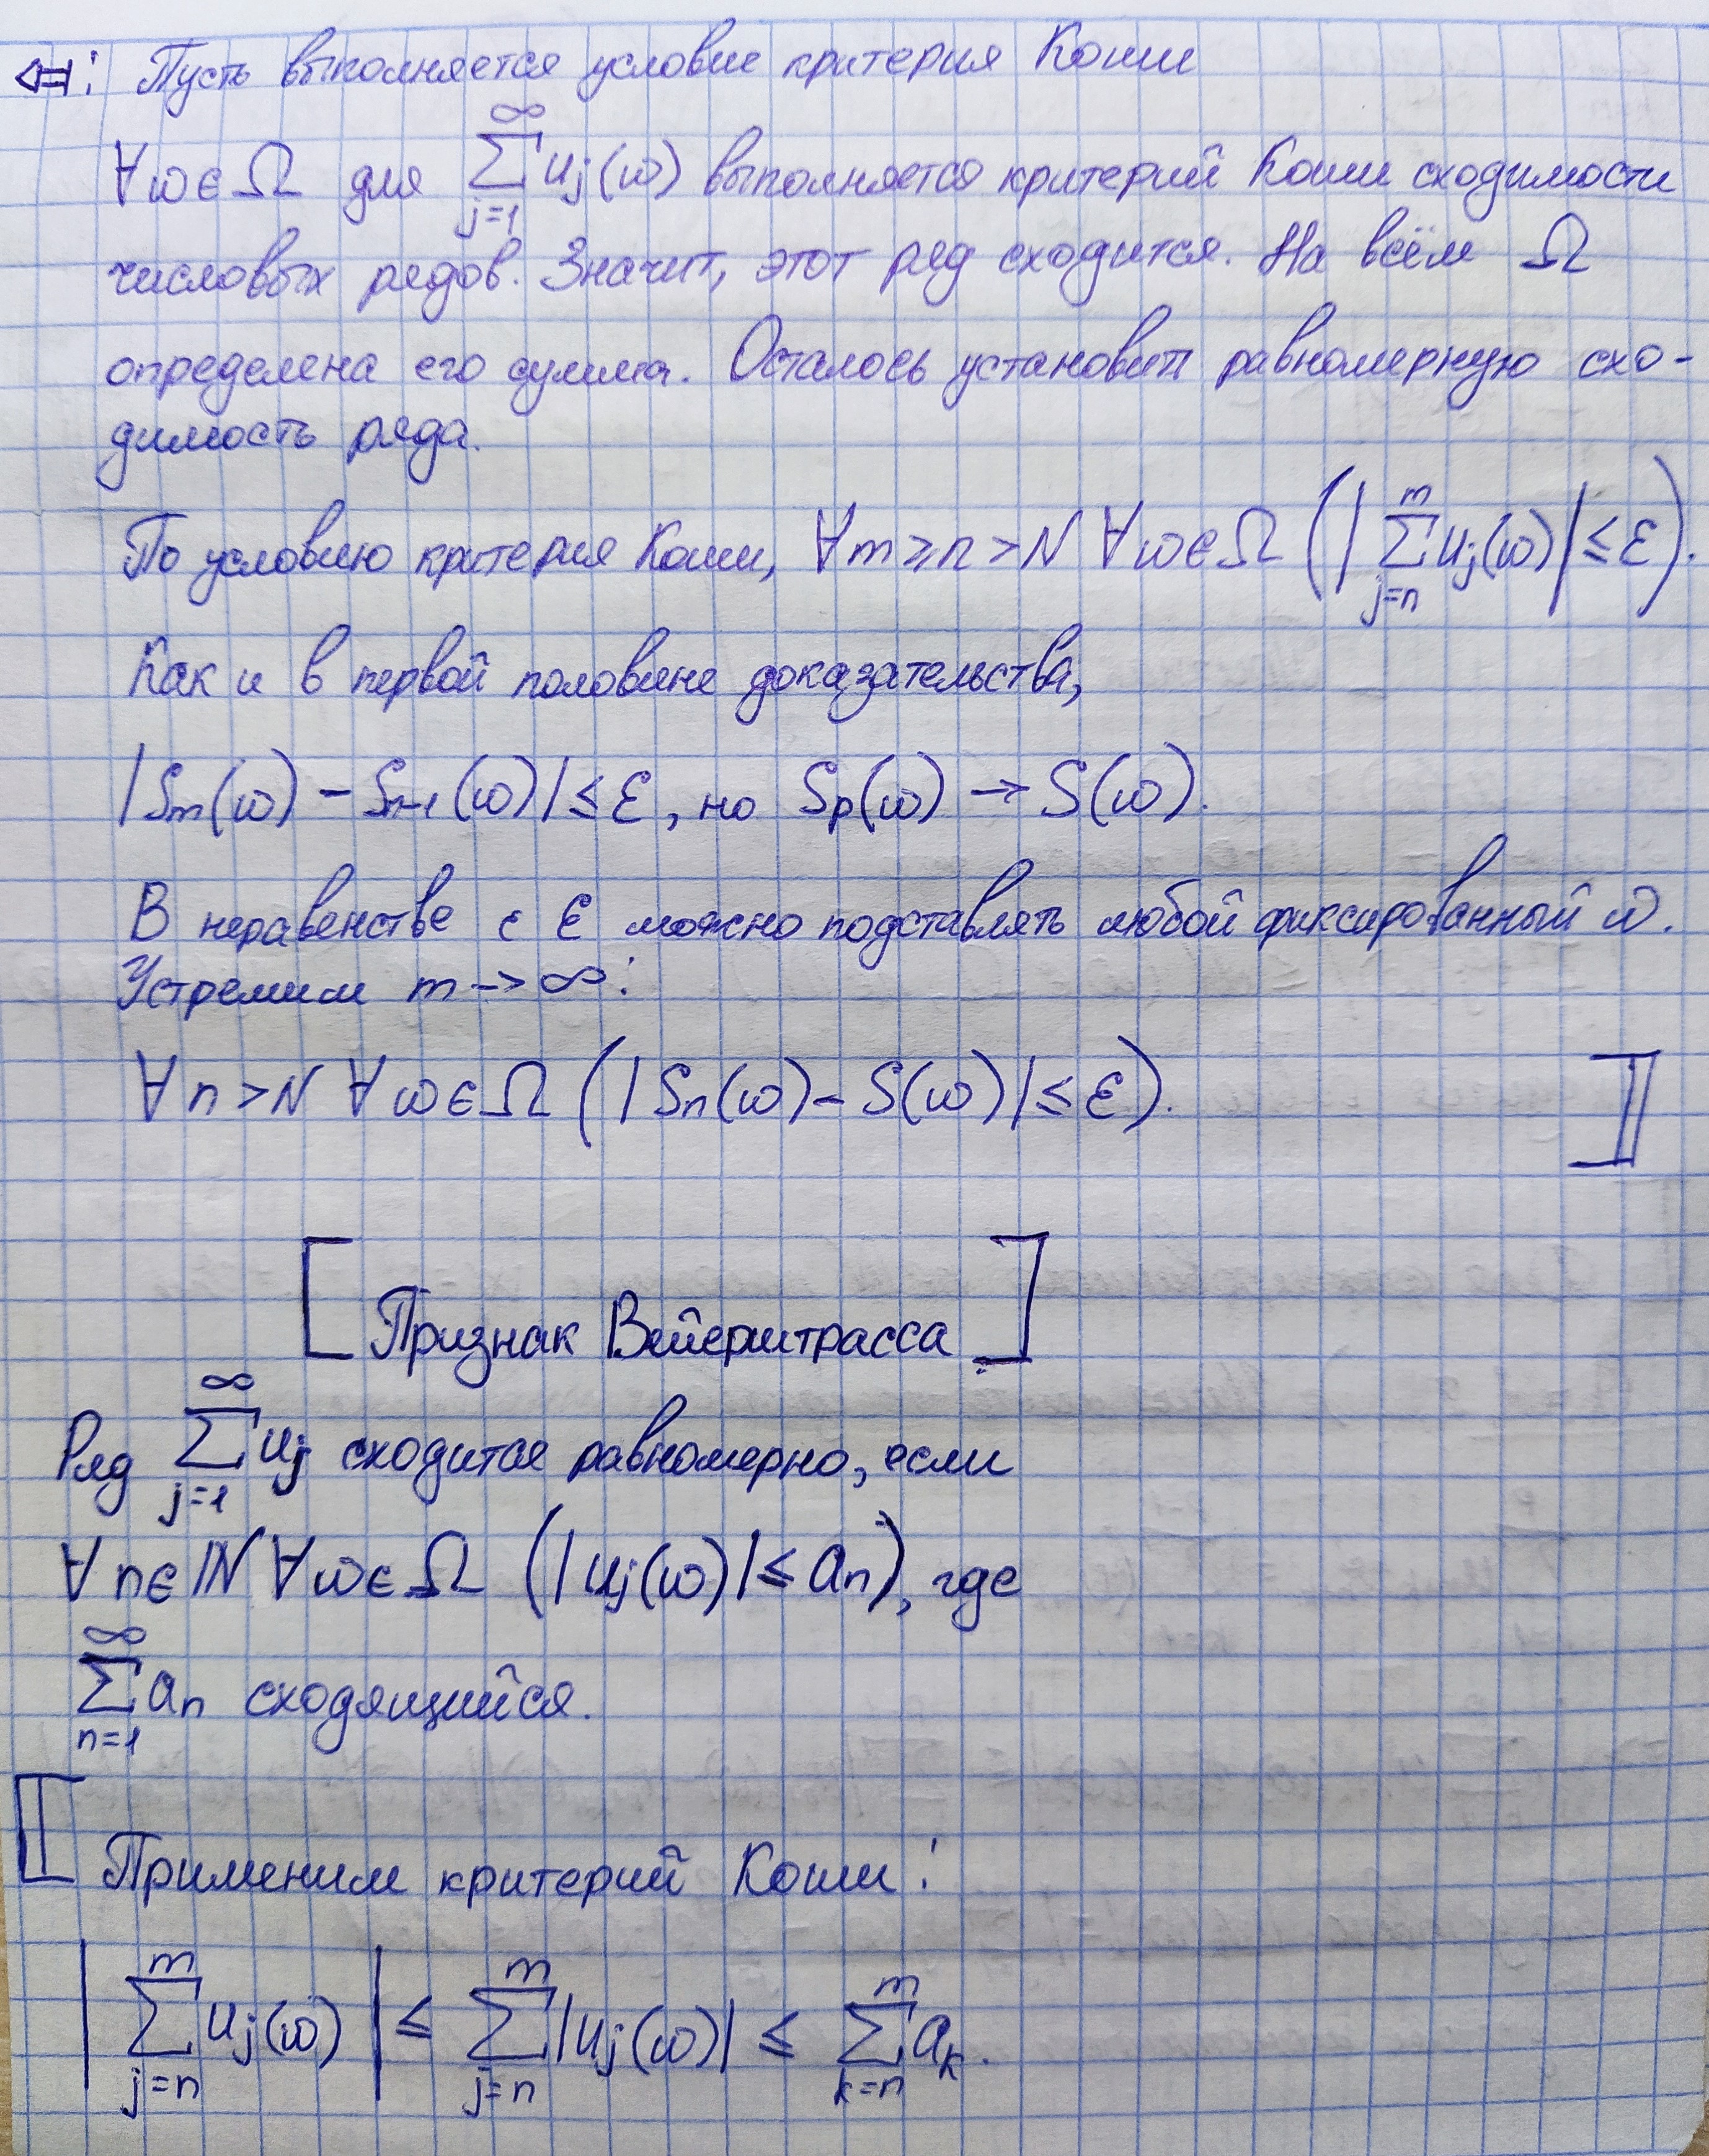 ⇐: Пусть выполняется условие критерия Коши
∀ω∈Ω для ∑_{j=1}^{∞} u_j(ω) выполняется критерий Коши сходимости
числовых рядов. Значит, этот ряд сходится. На всём Ω
определена его сумма. Осталось установить равномерную схо-
димость ряда.
По условию критерия Коши, ∀m⩾n>N ∀ω∈Ω (|∑_{j=n}^{m} u_j(ω)|≤ε).
Как и в первой половине доказательства,
|S_m(ω) − S_{n-1}(ω)|≤ε, но S_p(ω) → S(ω).
В неравенстве с ε можно подставлять любой фиксированный ω.
Устремим m→∞:
∀n>N ∀ω∈Ω (|S_n(ω) − S(ω)|≤ε). ]]
[Признак Вейерштрасса]
Ряд ∑_{j=1}^{∞} u_j сходится равномерно, если
∀n∈ℕ ∀ω∈Ω (|u_j(ω)|≤a_n), где
∑_{n=1}^{∞} a_n сходящийся.
[[ Применим критерий Коши:
|∑_{j=n}^{m} u_j(ω)| ≤ ∑_{j=n}^{m} |u_j(ω)| ≤ ∑_{k=n}^{m} a_k.